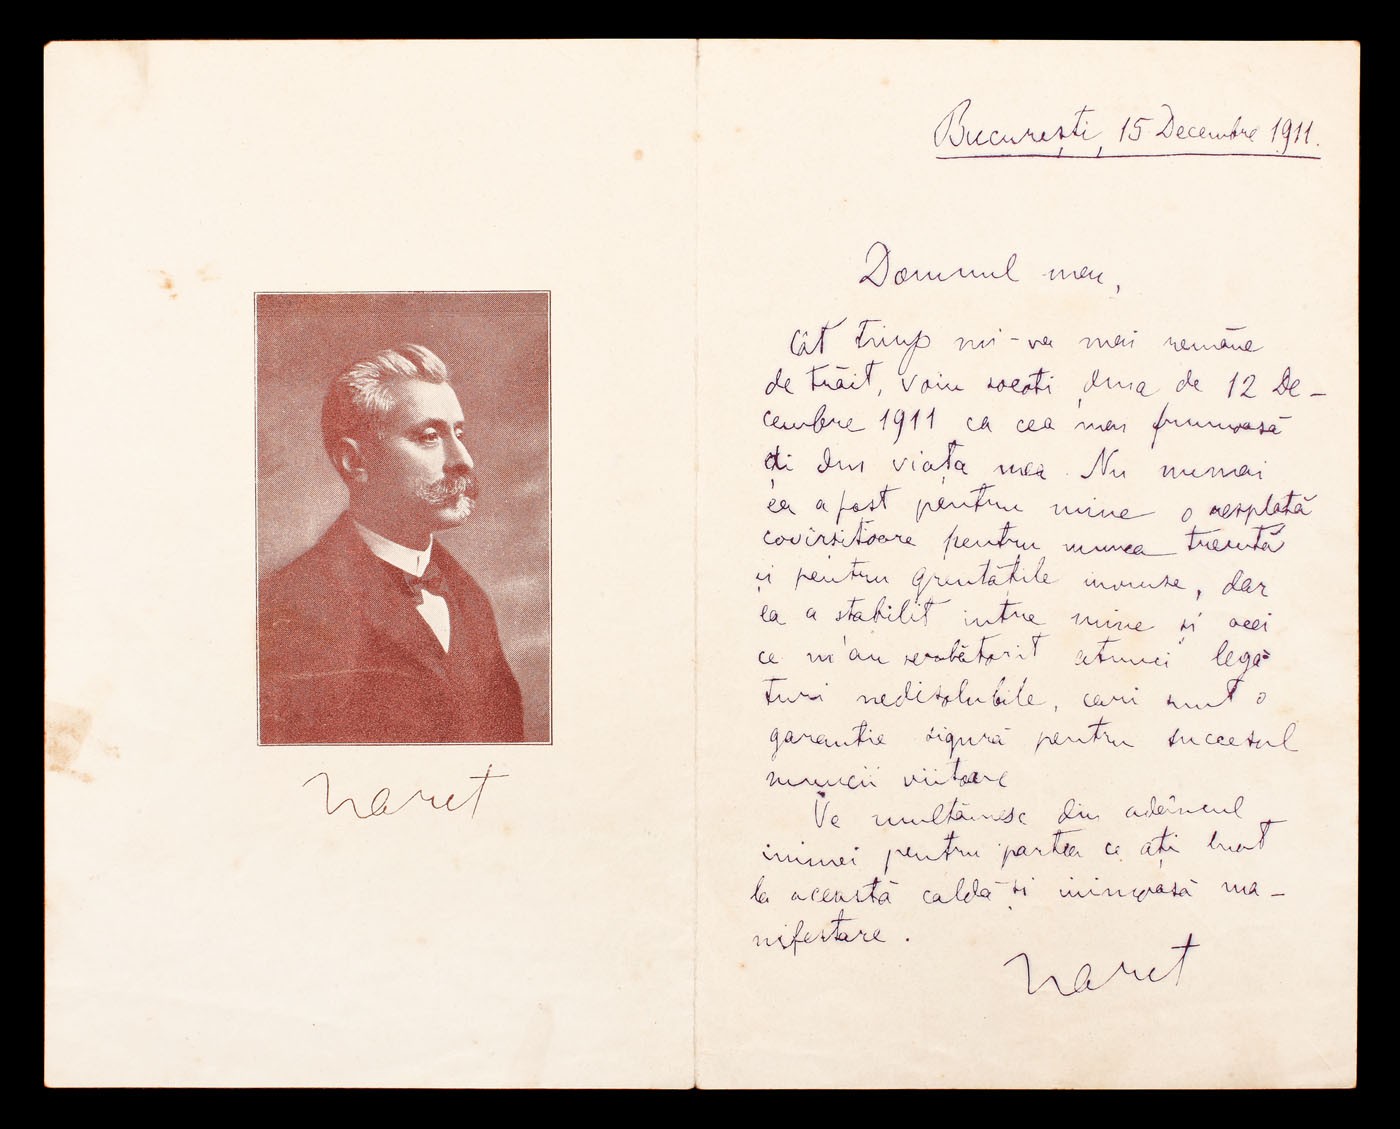 Haret
București, 15 Decembre 1911.
Domnul meu,
Cât timp mi-va mai remâne
de trăit, voiu socoti ziua de 12 De-
cembre 1911 ca cea mai frumoasă
zi din viața mea. Nu numai
ea a fost pentru mine o resplată
covîrsitoare pentru munca trecută
și pentru greutățile invinse, dar
ea a stabilit intre mine și acei
ce m'au serbătorit atunci legă-
turi nedisolubile, cari sunt o
garanție sigură pentru succesul
muncii viitoare
Ve multămesc din adâncul
inimei pentru partea ce ați luat
la această caldă și inimoasă ma-
nifestare.
Haret